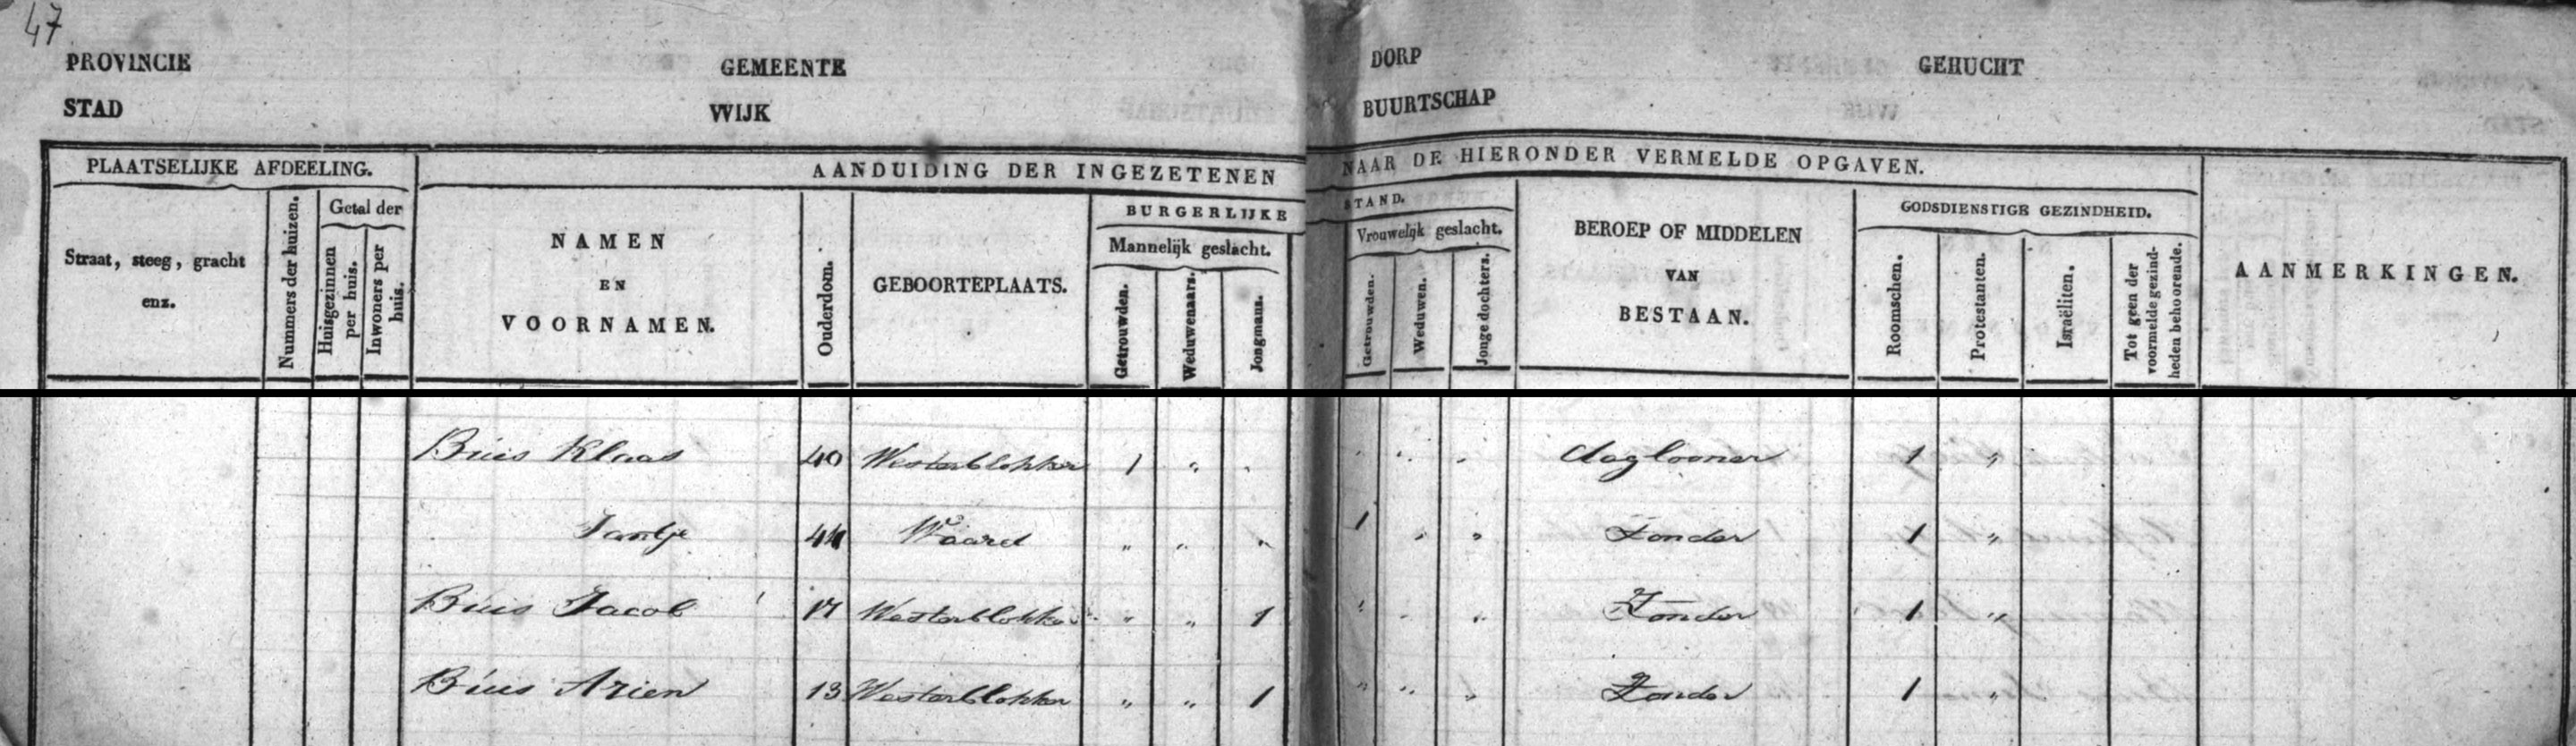 47
PROVINCIE GEMEENTE DORP GEHUCHT
STAD WIJK BUURTSCHAP
PLAATSELIJKE AFDEELING. AANDUIDING DER INGEZETENEN NAAR DE HIERONDER VERMELDE OPGAVEN.
Straat, steeg, gracht enz.
Nummers der huizen.
Getal der
Huisgezinnen per huis.
Inwoners per huis.
NAMEN
EN
VOORNAMEN.
Ouderdom.
GEBOORTEPLAATS.
BURGERLIJKE STAND.
Mannelijk geslacht.
Getrouwden.
Weduwenaars.
Jongmans.
Vrouwelijk geslacht.
Getrouwden.
Weduwen.
Jonge dochters.
BEROEP OF MIDDELEN
VAN
BESTAAN.
GODSDIENSTIGE GEZINDHEID.
Roomschen.
Protestanten.
Israëliten.
Tot geen der voormelde gezindheden behoorende.
AANMERKINGEN.
Buis Klaas 40 Westerblokker 1 " " " " " daglooner 1 "
Jantje 44 Waard " " " 1 " " Zonder 1 "
Buis Jacob 17 Westerblokker " " 1 " " " Zonder 1 "
Buis Arien 13 Westerblokker " " 1 " " " Zonder 1 "